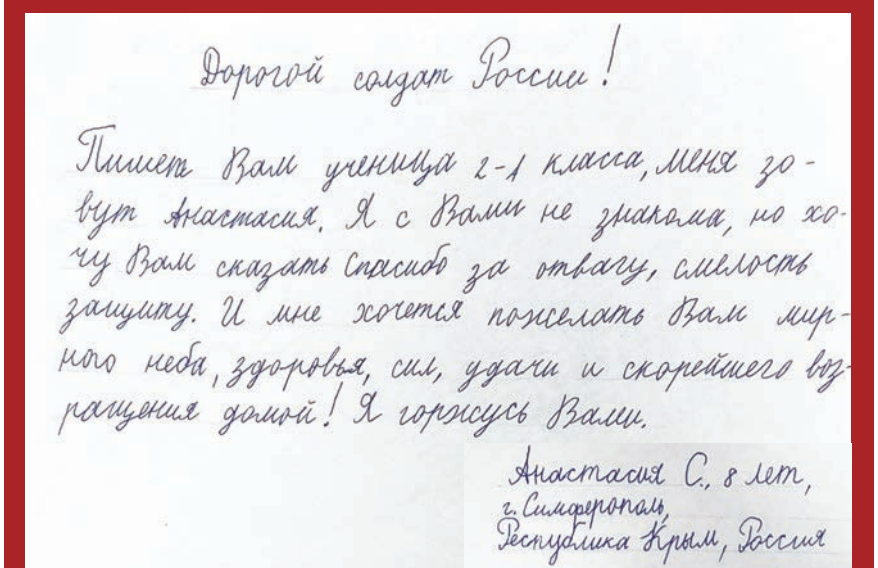 Дорогой солдат России!
Пишет Вам ученица 2-А класса, меня зо-
вут Анастасия. Я с Вами не знакома, но хо-
чу Вам сказать Спасибо за отвагу, смелость
защиту. И мне хочется пожелать Вам мир-
ного неба, здоровья, сил, удачи и скорейшего воз-
ращения домой! Я горжусь Вами.
Анастасия С., 8 лет,
г. Симферополь,
Республика Крым, Россия